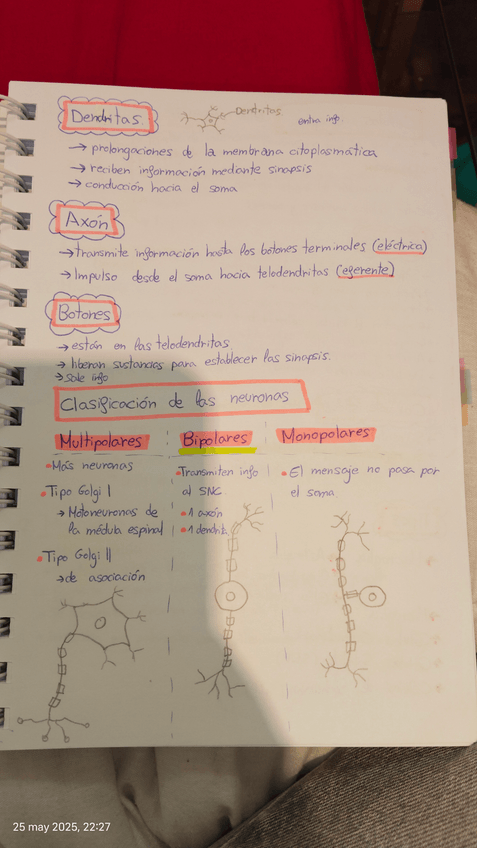 Dendritas
Dendritas
entra info
→ prolongaciones de la membrana citoplasmática
→ reciben información mediante sinapsis
→ conducción hacia el soma
Axón
→ transmite información hasta los botones terminales (eléctrica)
→ Impulso desde el soma hacia telodendritas (eferente)
Botones
→ están en las telodendritas
→ liberan sustancias para establecer las sinapsis.
→ sale info
Clasificación de las neuronas
Multipolares
• Más neuronas
• Tipo Golgi I
→ Motoneuronas de
la médula espinal
• Tipo Golgi II
→ de asociación
Bipolares
• Transmiten info
al SNC
• 1 axón
• 1 dendrita
Monopolares
• El mensaje no pasa por
el soma.
25 may 2025, 22:27